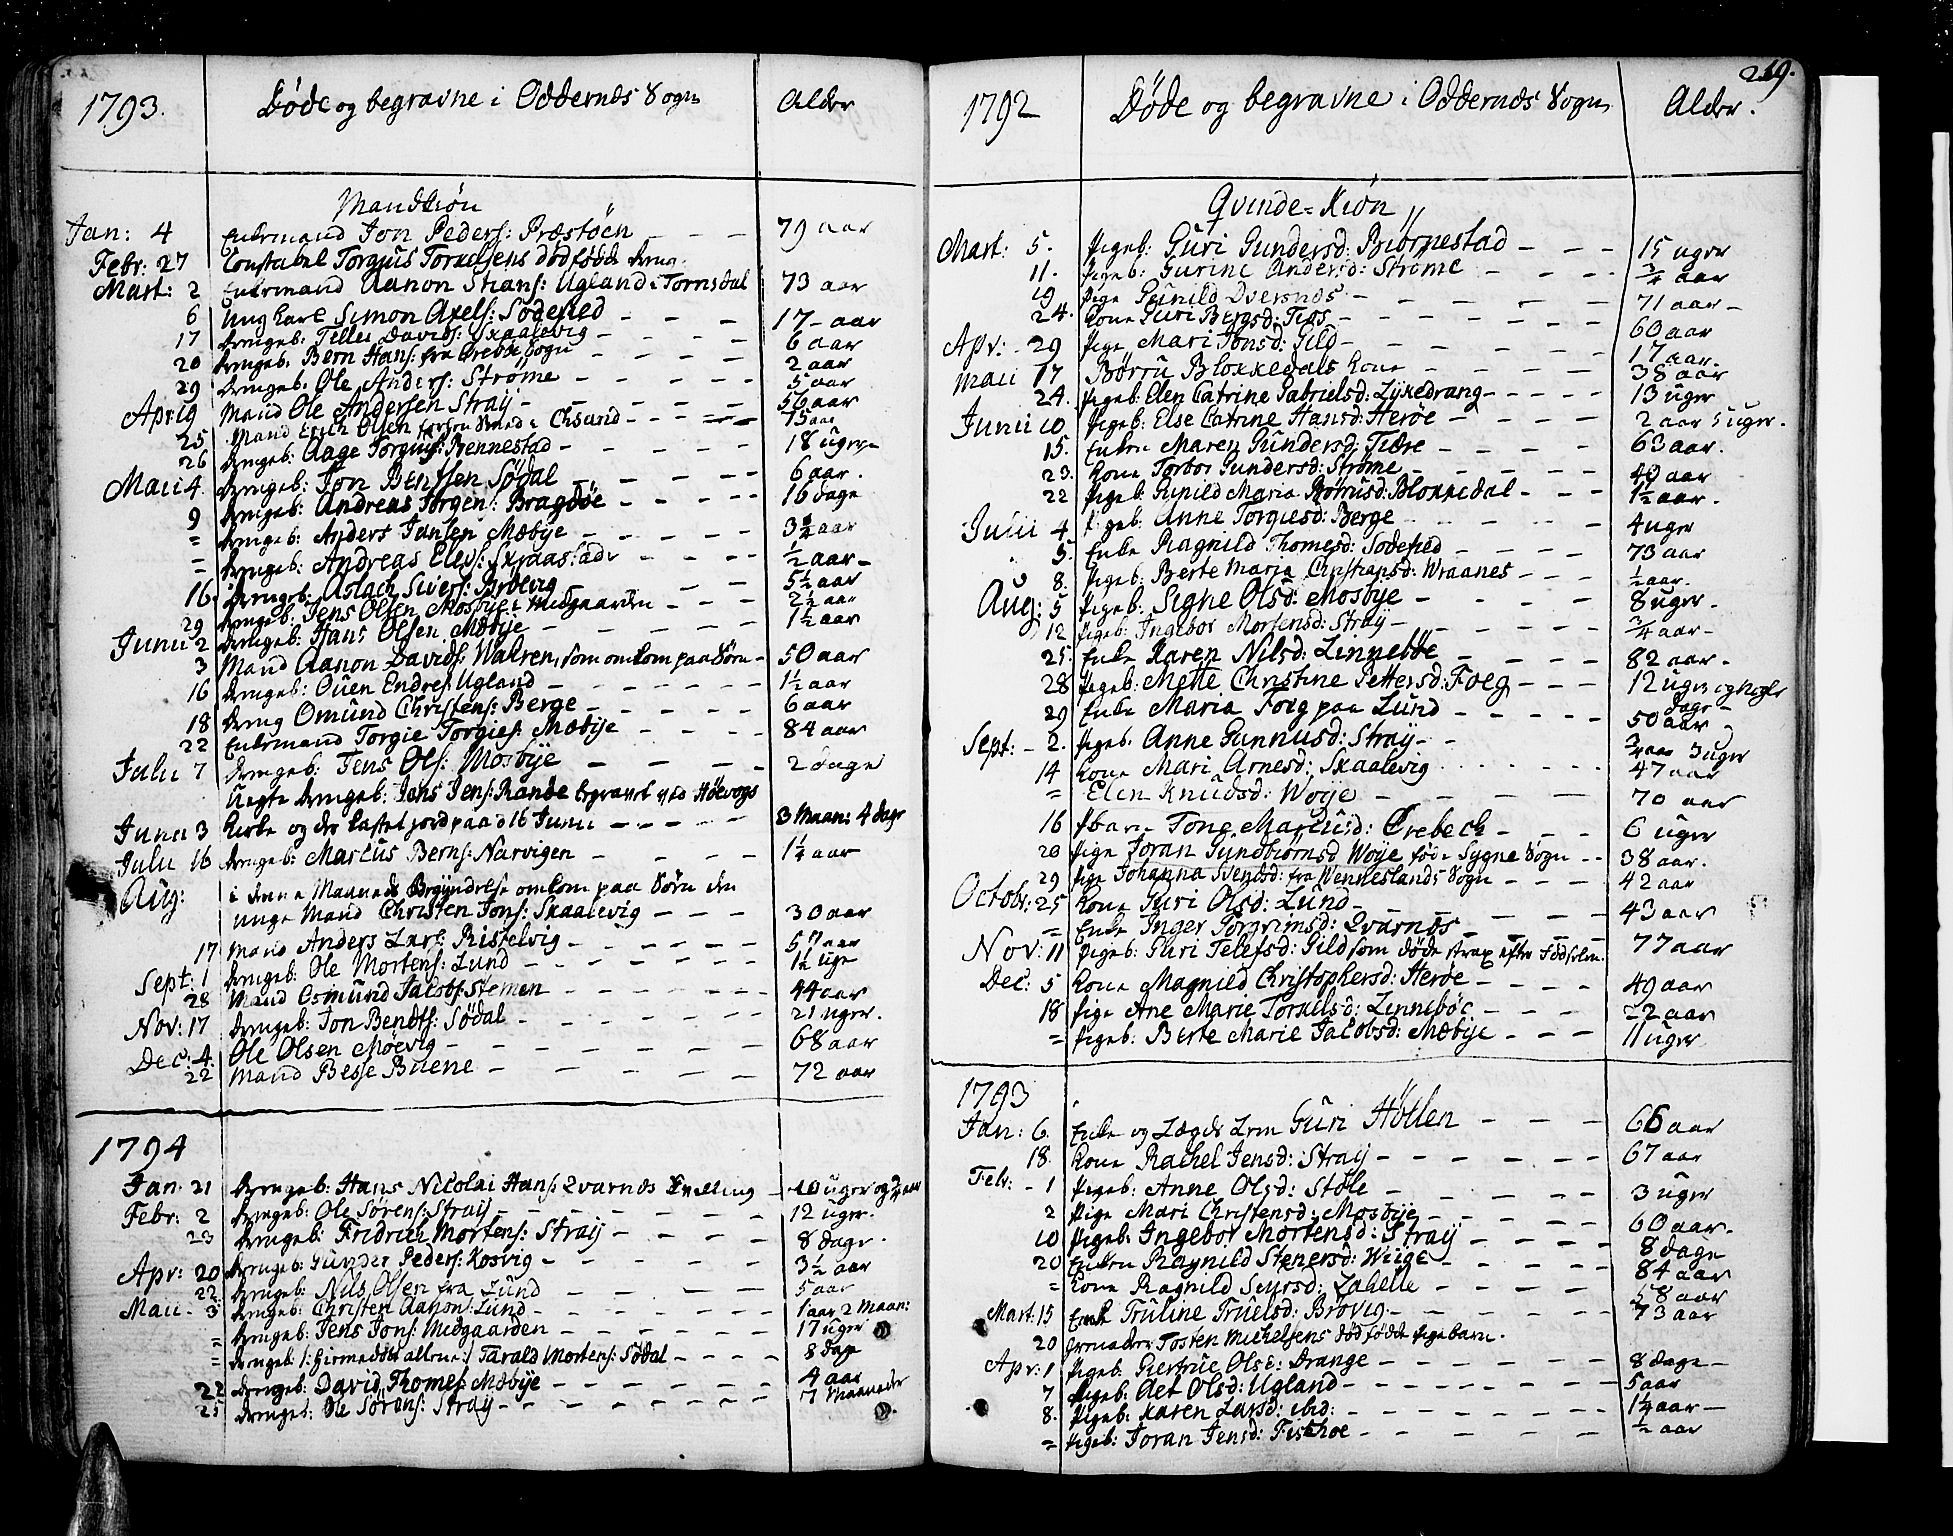 1793. Døde og begravne i Oddernæs Sogn Alder
Mandkiøn
Jan: 4 Enkemand Jon Peders: Præstøen - - - 79 aar
Febr: 27 Constabel Torgius Torkelsens dødfødde dreng.
Mart: 2 Enkemand Aanon Stians: Ugland i Tornsdal 73 aar
6 Ung karl Simon Axels: Sødefied - - - 17 - aar
17 drengeb: Tellev Davids: Skaalevig - - - 6 aar
20 drengeb. Bern Hans: fra Sogn - - - 2 aar
29 drengeb. Ole Anders: Strøme - - - - 5 aar
April 9 Mand Ole Andersen Straÿ - - - - 56 aar
25 Mand Erich Olsen - - - 75 aar
26 drengeb: Aage Torgius: Rennestad - - - 18 uger -
Maii 4. drengeb: Jon Bentsen Sødal - - - - 6 aar.
9 drengeb: Andreas Jørgens: Bragdøe - - - 16 dage
= drengeb: Anders Jansen Mæbÿe - - - - aar
= drengeb: Andreas Elevs: - - - 1/2 aar -
16. drengeb: Aslach Sivers: - - - 5 1/2 aar
29 drengeb: Jens Olsen Mosbÿe i Midgaarden - - - 2 1/2 aar
Junii 2 drengeb: Hans Olsen Mæbÿe - - - - 1 1/2 aar
3 Mand Aanon Davids: Walren, som omkom paa Søen - 50 aar
16 drengeb: Ouen Endres: Ugland - - - - 1 1/2 aar
18 dreng Omund Christens: Berge - - - - 6 aar
22 Enkemand Torgie Torgies: Mæbÿe - - - 84 aar
Julii 7 drengeb: Jens Ols: Mosbÿe - - - - 2 dage
Uægte drengeb: Jens Jens: Rande begravet ved Høevogs
Junii 3 kirke og der kastet jord paa d 16 Junii - - - 3 Maan: 4 dage
Julii 16 drengeb: Marcus Berns: Narvigen - - - 1 1/4 aar
Aug: i denne Maaneds Begÿndelse omkom paa Søen den
unge Mand Christen Jons: Skaalevig - - - 30 aar
17 Mand Anders Lars: Ristelvig - - - - aar
Sept: 1 drengeb: Ole Mortens: Lund - - - - 1 1/2 uge
28 Mand Osmund Jacobs: Stemen - - - - 44 aar
Nov: 17 drengeb: Jon Bendts: Sødal - - - - 21 uger.
Dec: 4. Ole Olsen Moevig - - - - 68 aar
22 Mand Besse Buene - - - - 72 aar
1794
Jan. 21 drengeb: Hans Nicolai Hans: Qvarnæs - 10 uger og
Febr: 2 drengeb: Ole Sørens: Straÿ - - - - 12 uger.
23 drengeb: Fridrich Mortens: Straÿ - - - - 8 dage.
Apr: 20 drengeb: Gunder Peders: Kosvig - - - - 3 1/2 aar
22 drengeb: Nils Olsen fra Lund - - - - 5 aar
Maii - 3 drengeb: Christen Aanon: Lund - - - - 1 aar 2 Maan:
= drengeb: Jens Jons: Midgaarden - - - - 17 uger
= drengeb: /: hiemedøbt allene:/ Tarald Mortens: Sødal - - - - 8 dage
22 drengeb: David Thomes: Mæbÿe - - - - 4 aar
25 drengeb: Ole Sørens: Straÿ - - - - 7 Maaneder
219.
1792 Døde og begravne i Oddernæs Sogn Alder.
Qvinde=Kiøn
Mart: 5. Pigeb: Guri Gundersd: Biørnestad - - - 15 uger
11. Pigeb: Gurine Andersd: Strøme - - - 3/4 aar
19 Pige Gunild Dversnæs - - - - 71 aar -
24. Kone Guri Bergsd: - - - - 60 aar
Apr: - 29 Pige Mari Jonsd: Gild - - - - 17 aar
Maii 17 Børru Blokkedals kone - - - - 38 aar
24. Pigeb: Elen Catrine Gabrielsd: Lÿkedrang - - - - 13 uger
Junii 10 Pigeb: Else Catrine Hansd: Herøe - - - 2 aar 5 uger.
15. Enken Maren Gundersd: - - - - 63 aar.
23. Kone Torbor Gundersd: Strøme - - - - 40 aar
22 Pigeb: Gunild Maria Børrusd: Blokkedal - - - 1 1/2 aar.
Julii 4 Pigeb: Anne Torgiesd: Berge - - - - 4 uger
5. Enke Ragnild Thomesd: Sodefied - - - - 73 aar
8. Pigeb: Berte Maria Christiansd: Wraanes - - - 1/2 aar.
Aug: 5 Pigeb: Signe Olsd: Mosbÿe - - - - 8 uger.
12 Pigeb: Ingebor Mortensd: Straÿ - - - - 3/4 aar -
25 Enke Karen Nilsd: Linnebøe - - - - 82 aar -
28 Pigeb: Mette Christine Pettersd: Foeg - - - 12 uger og nogle
dage -
29 Enke Maria Foeg paa Lund - - - - 50 aar -
Sept: - 2. Pigeb: Anne Gunnusd: Straÿ - - 3/4 aar 3 uger
14 Kone Mari Arnesd: Skaalevig - - - - 47 aar
= Elen Knudsd: Woÿe - - - - 70 aar
16 Tone Marcusd: Ørebech - - - 6 uger
20 Pige Joran Gundbiørnsd Woÿe fød i Sÿgne Sogn - - 38 aar.
29 Pige Johanna Svendsd: fra Wenneslands Sogn - - - 42 aar
Octobr: 25 Kone Guri Olsd: Lund - - - - 43 aar
= Enke Inger Torgrimsd: Qvarnæs - - - - 77 aar
Nov: 11 Pigeb: Guri Telefsd: Gild som døde strax efter Fødselen.
Dec: 5 Kone Magnild Christophersd: Herøe - - - 49 aar
18 Pige Ane Marie Torkilsd: Linnebøe - - - 22 aar
= Pigeb: Berte Marie Jacobsd: Mæbÿe - - - 11 uger
1793
Jan: 6. Enke og Lægds Lem Guri Høllen - - - 66 aar
18. Kone Rachel Jensd: Straÿ - - - - 67 aar
Febr: - 1 Pigeb: Anne Olsd: Støle - - - - 3 uger
2 Pige Mari Christensd: Mosbÿe - - - - 60 aar -
10 Pigeb: Ingebor Mortensd: Straÿ - - - - 8 dage
20 Enken Raÿnild Stenersd: Wiige - - - - 84 aar
= Kone Ragnild Seursd: - - - - 58 aar
Mart: 15 Enke Truline Truelsd: Brøvig - - - - 73 aar
20 Grenadeer Tosten Michelsens dødfødte pigebarn.
Apr: 1 Pigeb: Giertrue Olsd: Drange - - - - 8 dage -
7 Pigeb: Aet Olsd: Ugland - - - - 5 aar
8. Pigeb: Karen Larsd: ibid: - - - - 1 1/4 aar -
= Pigeb: Joran Jensd: - - - - 1/2 aar